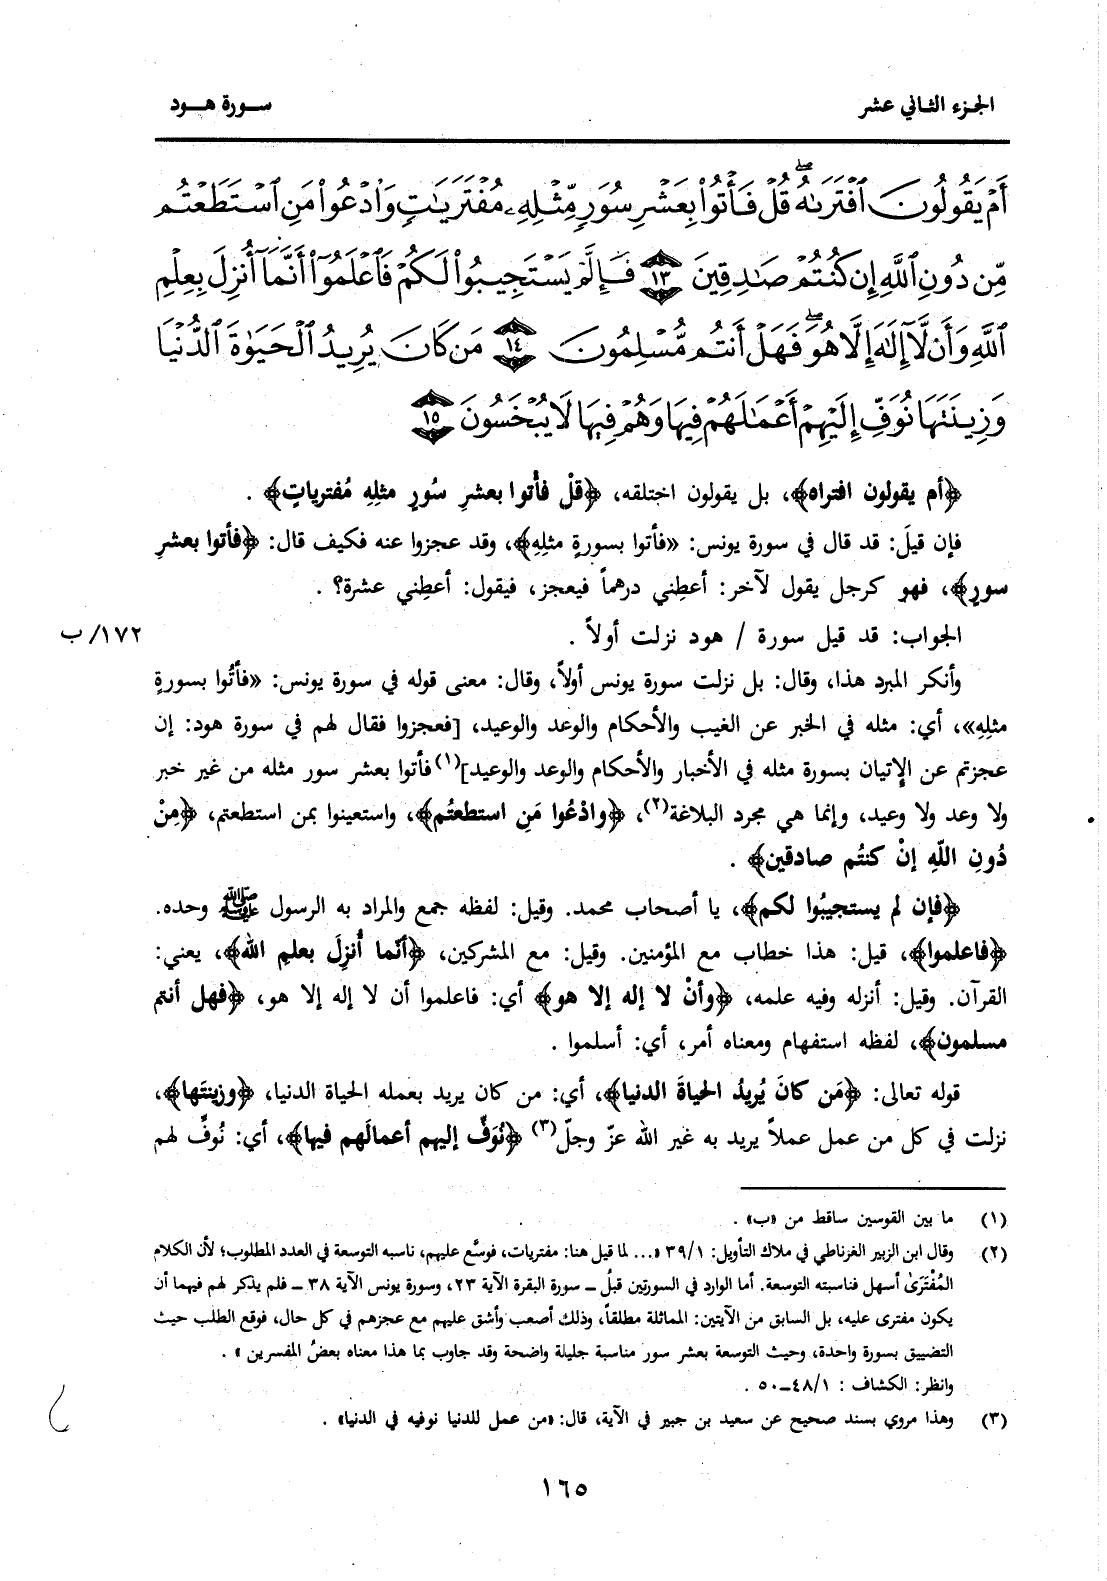 الجزء الثاني عشر
سورة هود
أَمْ يَقُولُونَ ٱفْتَرَىٰهُ ۖ قُلْ فَأْتُوا۟ بِعَشْرِ سُوَرٍ مِّثْلِهِۦ مُفْتَرَيَـٰتٍ وَٱدْعُوا۟ مَنِ ٱسْتَطَعْتُم
مِّن دُونِ ٱللَّهِ إِن كُنتُمْ صَـٰدِقِينَ ١٣ فَإِلَّمْ يَسْتَجِيبُوا۟ لَكُمْ فَٱعْلَمُوٓا۟ أَنَّمَآ أُنزِلَ بِعِلْمِ
ٱللَّهِ وَأَن لَّآ إِلَـٰهَ إِلَّا هُوَ ۖ فَهَلْ أَنتُم مُّسْلِمُونَ ١٤ مَن كَانَ يُرِيدُ ٱلْحَيَوٰةَ ٱلدُّنْيَا
وَزِينَتَهَا نُوَفِّ إِلَيْهِمْ أَعْمَـٰلَهُمْ فِيهَا وَهُمْ فِيهَا لَا يُبْخَسُونَ ١٥
﴿أم يقولون افتراه﴾، بل يقولون اختلقه، ﴿قلْ فأْتوا بعشرِ سُورٍ مثلِهِ مُفترياتٍ﴾ .
فإن قيلَ: قد قال في سورة يونس: «فأتوا بسورةٍ مثلِهِ﴾، وقد عجزوا عنه فكيف قال: ﴿فأتوا بعشرِ
سورٍ﴾، فهو كرجل يقول لآخر: أعطِني درهماً فيعجز، فيقول: أعطِني عشرة؟ .
الجواب: قد قيل سورة / هود نزلت أولاً .
١٧٢/ ب
وأنكر المبرد هذا، وقال: بل نزلت سورة يونس أولاً، وقال: معنى قوله في سورة يونس: «فأتُوا بسورةٍ
مثلِهِ»، أي: مثله في الخبر عن الغيب والأحكام والوعد والوعيد، [فعجزوا فقال لهم في سورة هود: إن
عجزتم عن الإتيان بسورة مثله في الأخبار والأحكام والوعد والوعيد](١) فأتوا بعشر سور مثله من غير خبر
ولا وعد ولا وعيد، وإنما هي مجرد البلاغة(٢)، ﴿وادْعُوا مَنِ استطعتُم﴾، واستعينوا بمن استطعتم، ﴿مِنْ
دُونِ اللّهِ إنْ كنتُم صادقين﴾ .
﴿فإن لم يستجيبُوا لكم﴾، يا أصحاب محمد. وقيل: لفظه جمع والمراد به الرسول ﷺ وحده.
﴿فاعلموا﴾، قيل: هذا خطاب مع المؤمنين. وقيل: مع المشركين، ﴿أنّما أُنزِلَ بعلمِ الله﴾، يعني:
القرآن. وقيل: أنزله وفيه علمه، ﴿وأنْ لا إله إلا هو﴾ أي: فاعلموا أن لا إله إلا هو، ﴿فهل أنتم
مسلمون﴾، لفظه استفهام ومعناه أمر، أي: أسلموا .
قوله تعالى: ﴿مَن كانَ يُريدُ الحياةَ الدنيا﴾، أي: من كان يريد بعمله الحياة الدنيا، ﴿وزينتَها﴾،
نزلت في كل من عمل عملاً يريد به غير الله عزّ وجلّ(٣) ﴿نُوَفِّ إليهم أعمالَهم فيها﴾، أي: نُوفِّ لهم
(١) ما بين القوسين ساقط من «ب» .
(٢) وقال ابن الزبير الغرناطي في ملاك التأويل: ٣٩/١ «... لما قيل هنا: مفتريات، فوسَّع عليهم، ناسبه التوسعة في العدد المطلوب؛ لأن الكلام
المُفْتَرَىٰ أسهل فناسبته التوسعة. أما الوارد في السورتين قبلُ ــ سورة البقرة الآية ٢٣، وسورة يونس الآية ٣٨ ــ فلم يذكر لهم فيهما أن
يكون مفترى عليه، بل السابق من الآيتين: المماثلة مطلقاً، وذلك أصعب وأشق عليهم مع عجزهم في كل حال، فوقع الطلب حيث
التضييق بسورة واحدة، وحيث التوسعة بعشر سور مناسبة جليلة واضحة وقد جاوب بما هذا معناه بعضُ المفسرين » .
وانظر: الكشاف : ٤٨/١ــ٥٠ .
(٣) وهذا مروي بسند صحيح عن سعيد بن جبير في الآية، قال: «من عمل للدنيا نوفيه في الدنيا» .
١٦٥